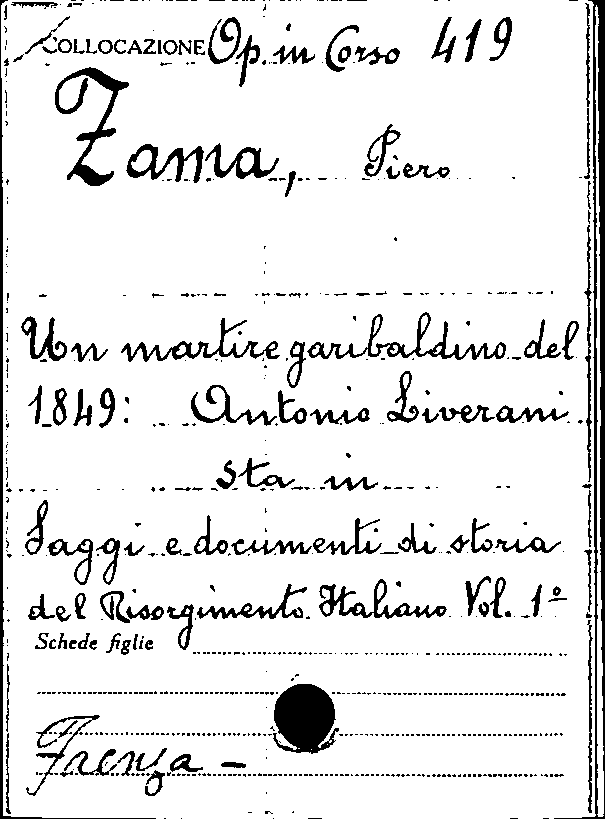 COLLOCAZIONE Op. in Corso 419
Zama, Piero
Un martire garibaldino del
1849: Antonio Liverani
sta in
Saggi e documenti di storia
del Risorgimento Italiano Vol. 1º
Schede figlie
Faenza -